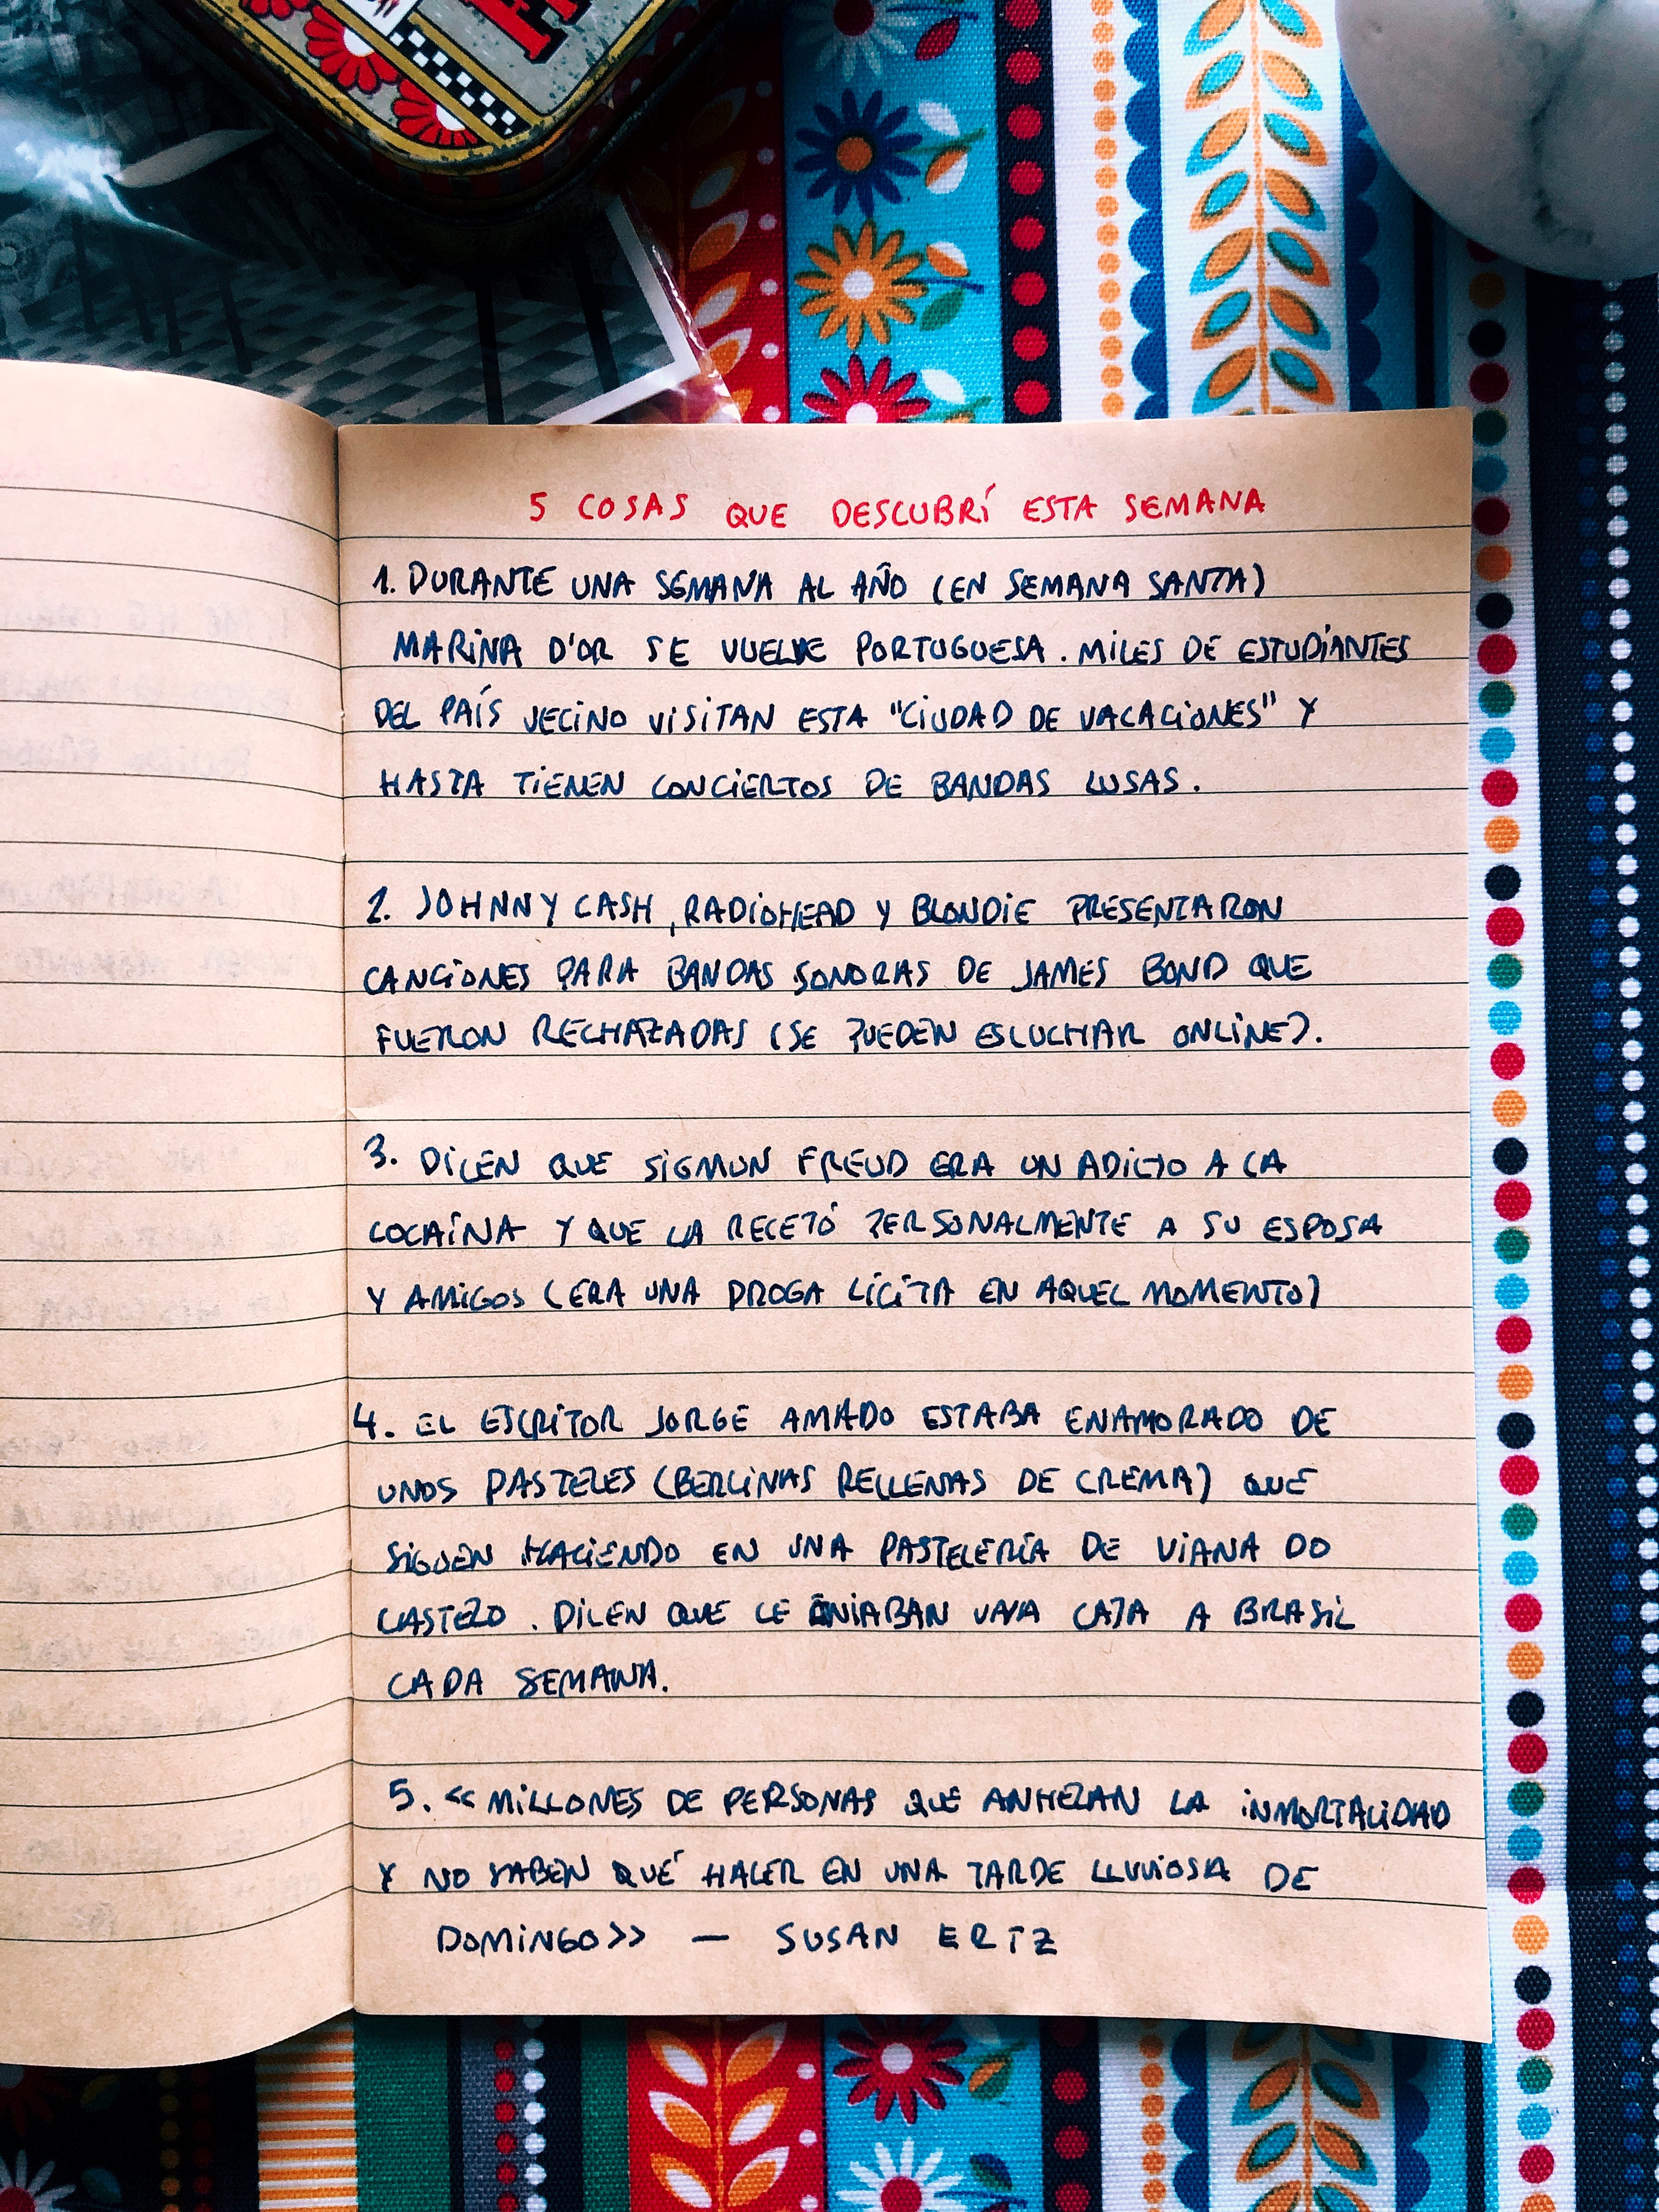 5 COSAS QUE DESCUBRÍ ESTA SEMANA
1. DURANTE UNA SEMANA AL AÑO (EN SEMANA SANTA)
MARINA D'OR SE VUELVE PORTUGUESA. MILES DE ESTUDIANTES
DEL PAÍS VECINO VISITAN ESTA "CIUDAD DE VACACIONES" Y
HASTA TIENEN CONCIERTOS DE BANDAS LUSAS.
2. JOHNNY CASH, RADIOHEAD Y BLONDIE PRESENTARON
CANCIONES PARA BANDAS SONORAS DE JAMES BOND QUE
FUERON RECHAZADAS (SE PUEDEN ESCUCHAR ONLINE).
3. DICEN QUE SIGMUN FREUD ERA UN ADICTO A LA
COCAÍNA Y QUE LA RECETÓ PERSONALMENTE A SU ESPOSA
Y AMIGOS (ERA UNA DROGA LÍCITA EN AQUEL MOMENTO)
4. EL ESCRITOR JORGE AMADO ESTABA ENAMORADO DE
UNOS PASTELES (BERLINAS RELLENAS DE CREMA) QUE
SIGUEN HACIENDO EN UNA PASTELERÍA DE VIANA DO
CASTELO. DICEN QUE LE ENVIABAN UNA CAJA A BRASIL
CADA SEMANA.
5. «MILLONES DE PERSONAS QUE ANHELAN LA INMORTALIDAD
Y NO SABEN QUÉ HACER EN UNA TARDE LLUVIOSA DE
DOMINGO» — SUSAN ERTZ